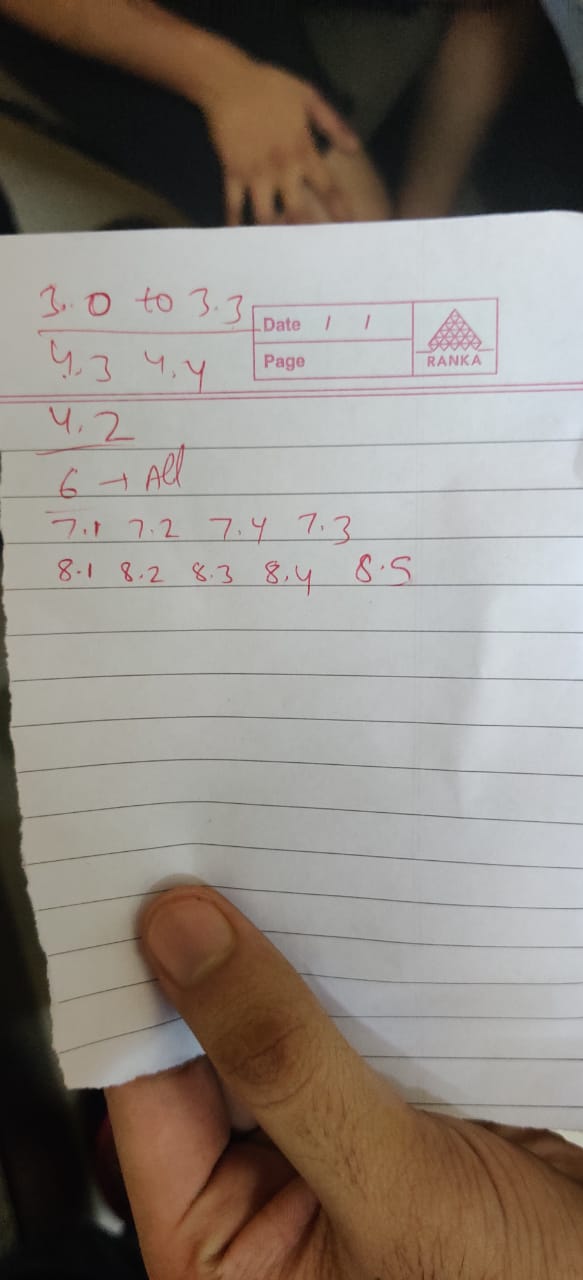 3.0 to 3.3
Date / /
4.3 4.4
Page
RANKA
4.2
6 → All
7.1 7.2 7.4 7.3
8.1 8.2 8.3 8.4 8.5